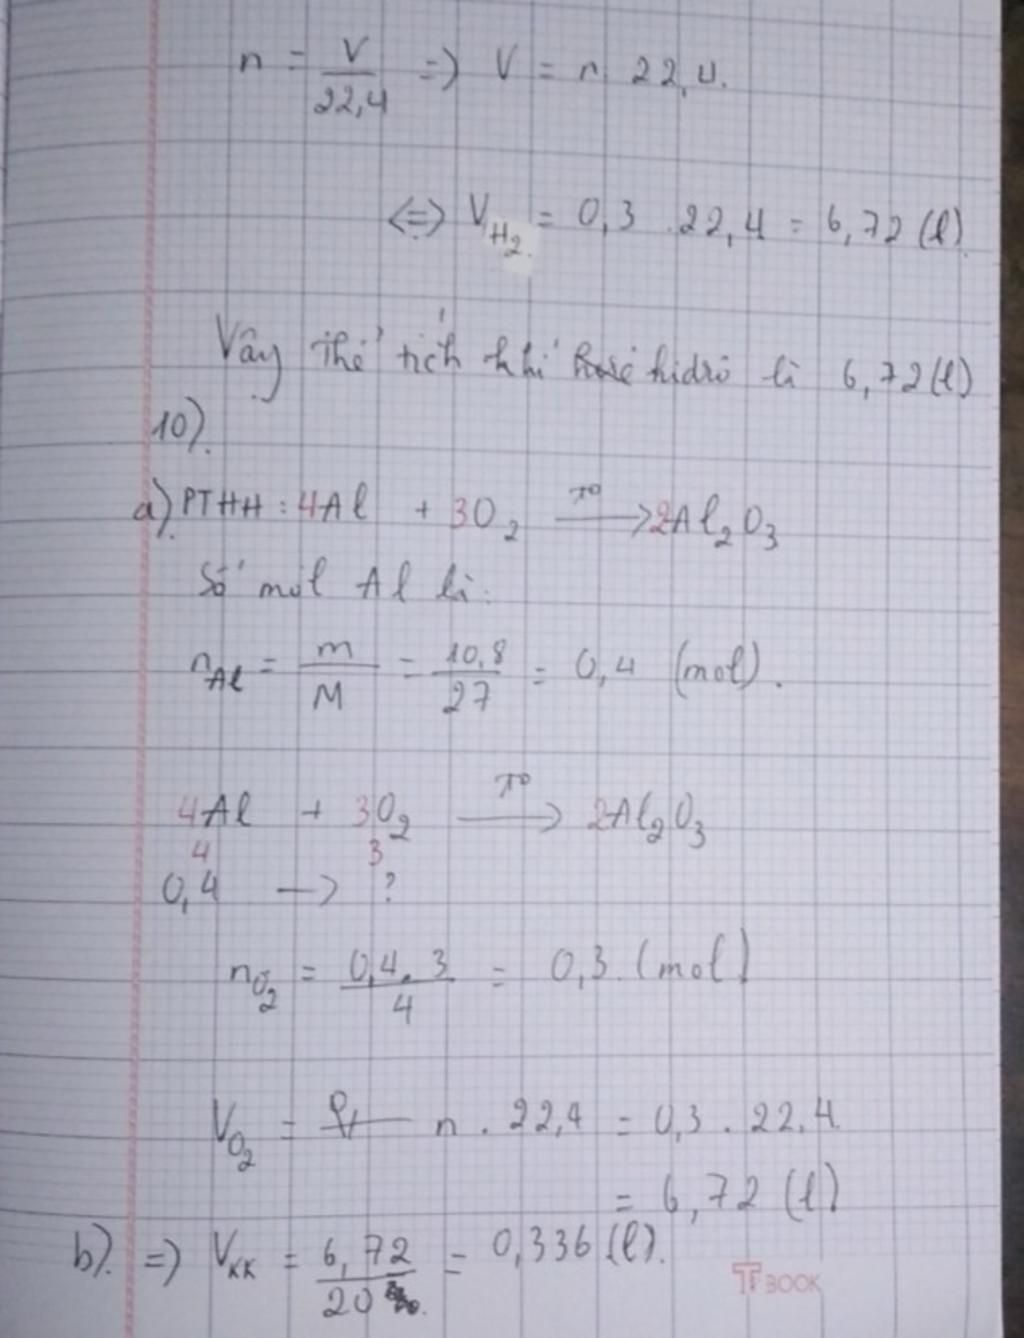 n = V/22,4 => V = n 22,4.
<=> V_H2 = 0,3 . 22,4 = 6,72 (l)
Vây thể tích khí hidrô là 6,72 (l)
10).
a). PTHH : 4Al + 3O2 —T°—> 2Al2O3
Số mol Al là:
n_Al = m/M = 10,8/27 = 0,4 (mol).
4Al + 3O2 —T°—> 2Al2O3
4 3
0,4 —> ?
n_O2 = 0,4.3/4 = 0,3 (mol)
V_O2 = n . 22,4 = 0,3 . 22,4
= 6,72 (l)
b). => V_KK = 6,72/20 = 0,336 (l).
TTBOOK